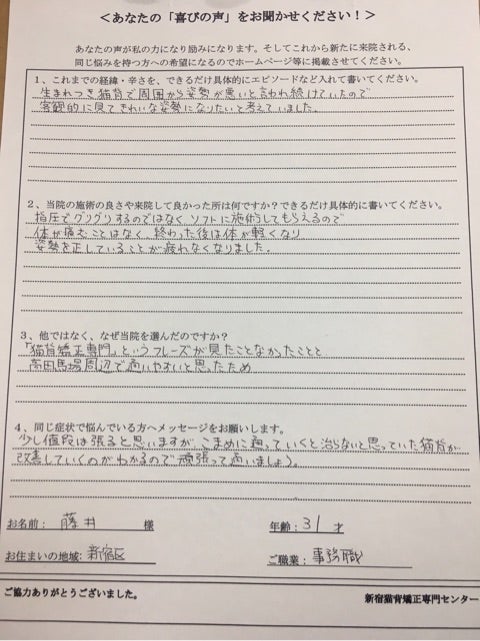 ＜あなたの「喜びの声」をお聞かせください！＞
あなたの声が私の力になり励みになります。そしてこれから新たに来院される、
同じ悩みを持つ方への希望になるのでホームページ等に掲載させてください。
1、これまでの経緯・辛さを、できるだけ具体的にエピソードなど入れて書いてください。
生まれつき猫背で周囲から姿勢が悪いと言われ続けていたので
客観的に見てきれいな姿勢になりたいと考えていました。
2、当院の施術の良さや来院して良かった所は何ですか？できるだけ具体的に書いてください。
指圧でグリグリするのではなく ソフトに施術してもらえるので
体が痛むことはなく、終わった後は体が軽くなり
姿勢を正していることが疲れなくなりました。
3、他ではなく、なぜ当院を選んだのですか？
「猫背矯正専門」というフレーズが見たことなかったことと
高田馬場周辺で通いやすいと思ったため
4、同じ症状で悩んでいる方へメッセージをお願いします。
少し値段は張ると思いますが、こまめに通っていくと治らないと思っていた猫背が
改善していくのがわかるので頑張って通いましょう。
お名前： 藤井 様 年齢：31 才
お住まいの地域：新宿区 ご職業：事務職
ご協力ありがとうございました。 新宿猫背矯正専門センター